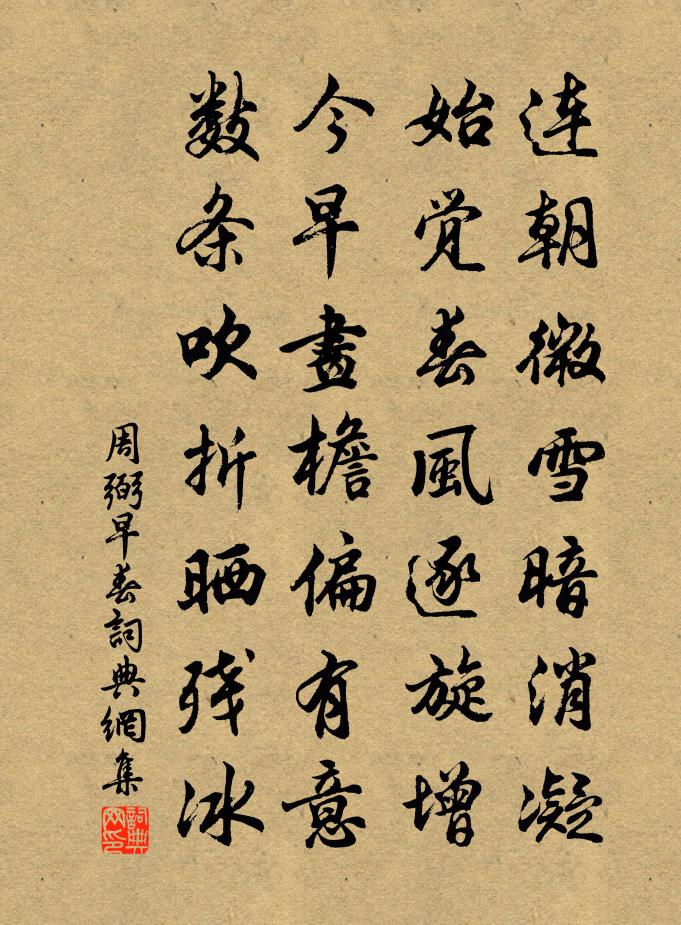 连朝微雪暗消凝
始觉春風逐旋增
今早畫檐偏有意
数条吹折晒残冰
周弼早春詞典網集
詞典网印